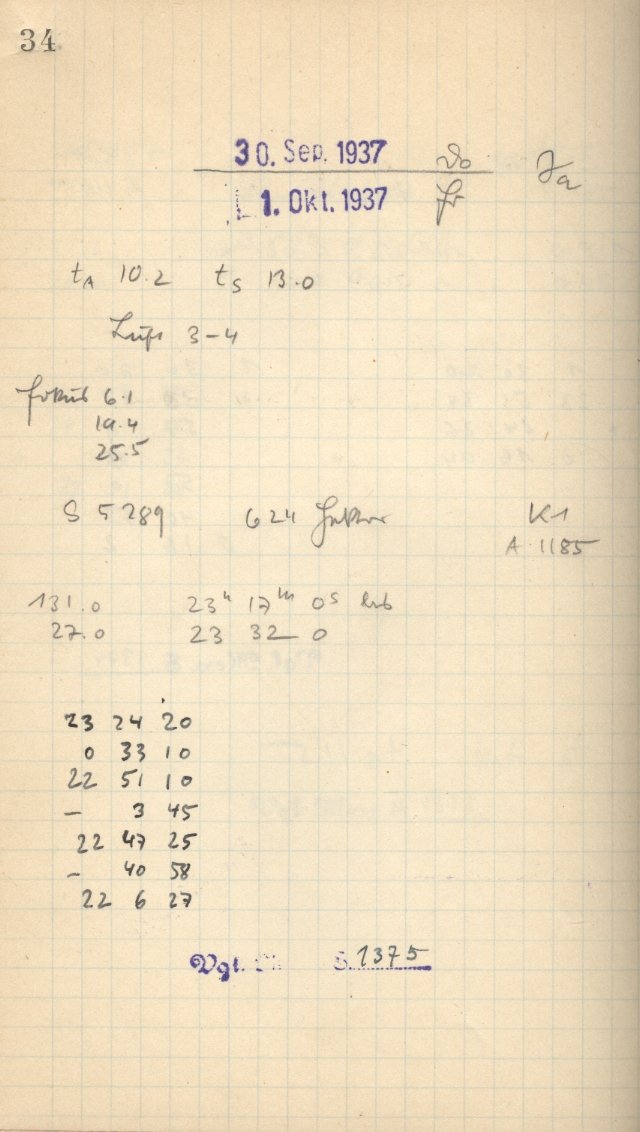 34
30. Sep. 1937 Do Ja
1. Okt. 1937 Fr
tA 10.2 tS 13.0
Luft 3-4
Fokus 6.1
19.4
25.5
S 5289 624 Hektor K1
A 1185
131.0 23h 17m 0s
27.0 23 32 0
23 24 20
0 33 10
22 51 10
- 3 45
22 47 25
- 40 58
22 6 27
Vgl. S. 1375